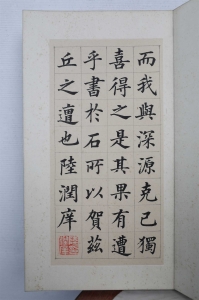 而我與深源克己獨
喜得之是其果有遭
乎書於石所以賀茲
丘之遭也陸潤庠